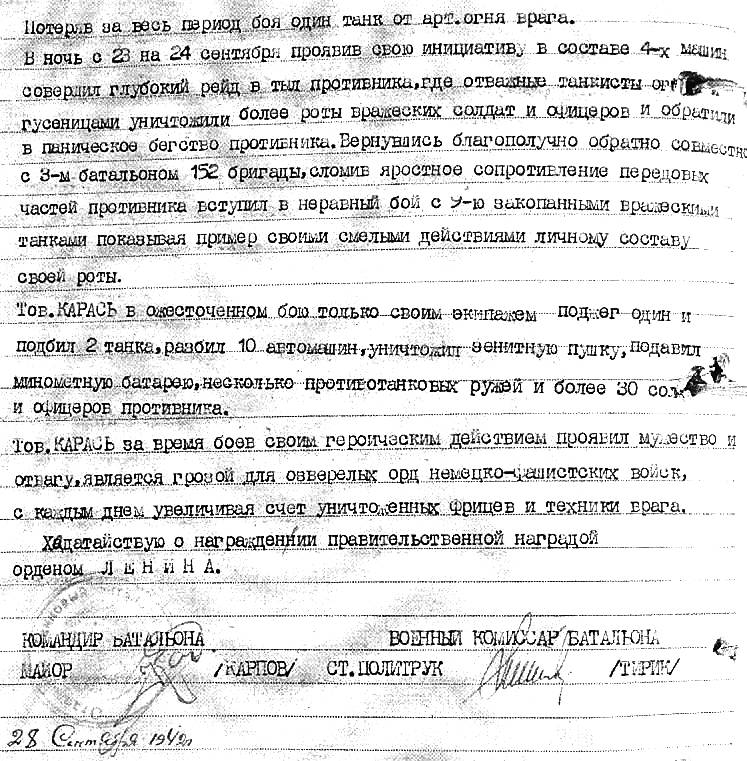 Потеряв за весь период боя один танк от арт.огня врага.
В ночь с 23 на 24 сентября проявив свою инициативу в составе 4-х машин
совершил глубокий рейд в тыл противника,где отважные танкисты
гусеницами уничтожили более роты вражеских солдат и офицеров и обратили
в паническое бегство противника.Вернувшись благополучно обратно совместно
с 3-м батальоном 152 бригады,сломив яростное сопротивление передовых
частей противника вступил в неравный бой с 9-ю закопанными вражескими
танками показывая пример своими смелыми действиями личному составу
своей роты.
Тов.КАРАСЬ в ожесточенном бою только своим экипажем поджег один и
подбил 2 танка,разбил 10 автомашин,уничтожил зенитную пушку,подавил
минометную батарею,несколько противотанковых ружей и более 30
и офицеров противника.
Тов.КАРАСЬ за время боев своим героическим действием проявил мужество и
отвагу,является грозой для озверелых орд немецко-фашистских войск,
с каждым днем увеличивая счет уничтоженных Фрицев и техники врага.
Хадатайствую о награжденнии правительственной наградой
орденом Л Е Н И Н А.
КОМАНДИР БАТАЛЬОНА ВОЕННЫЙ КОМИССАР БАТАЛЬОНА
МАЙОР /КАРПОВ/ СТ.ПОЛИТРУК /ТИРИК/
28 Сентября 1942г